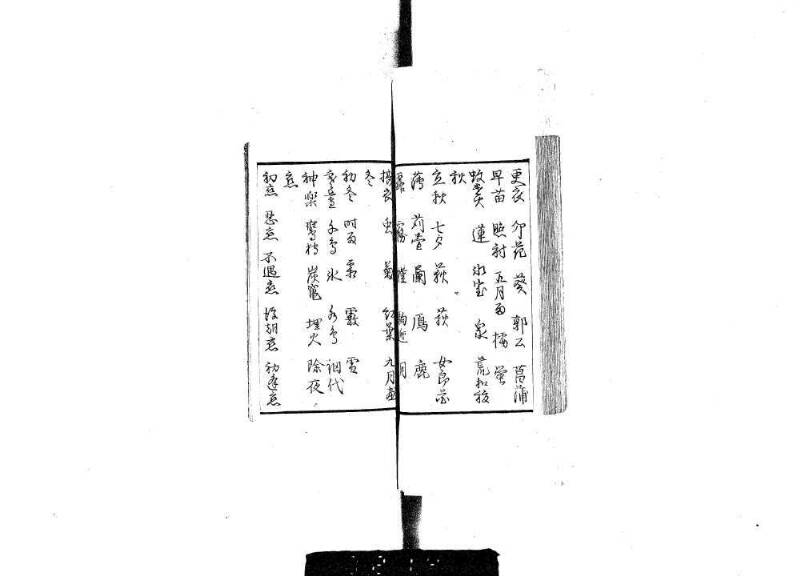 更衣 卯花 葵 郭公 菖蒲
早苗 照射 五月雨 橘 螢
蚊遣火 蓮 氷室 泉 荒和祓
秋
立秋 七夕 萩 荻 女郎花
薄 苅萱 蘭 鴈 鹿
露 霧 槿 駒迎 月
擣衣 虫 菊 紅葉 九月盡
冬
初冬 時雨 霜 霰 雪
寒蘆 千鳥 氷 水鳥 網代
神樂 鷹狩 炭竈 埋火 除夜
恋
初恋 忍恋 不遇恋 後朝恋 初逢恋